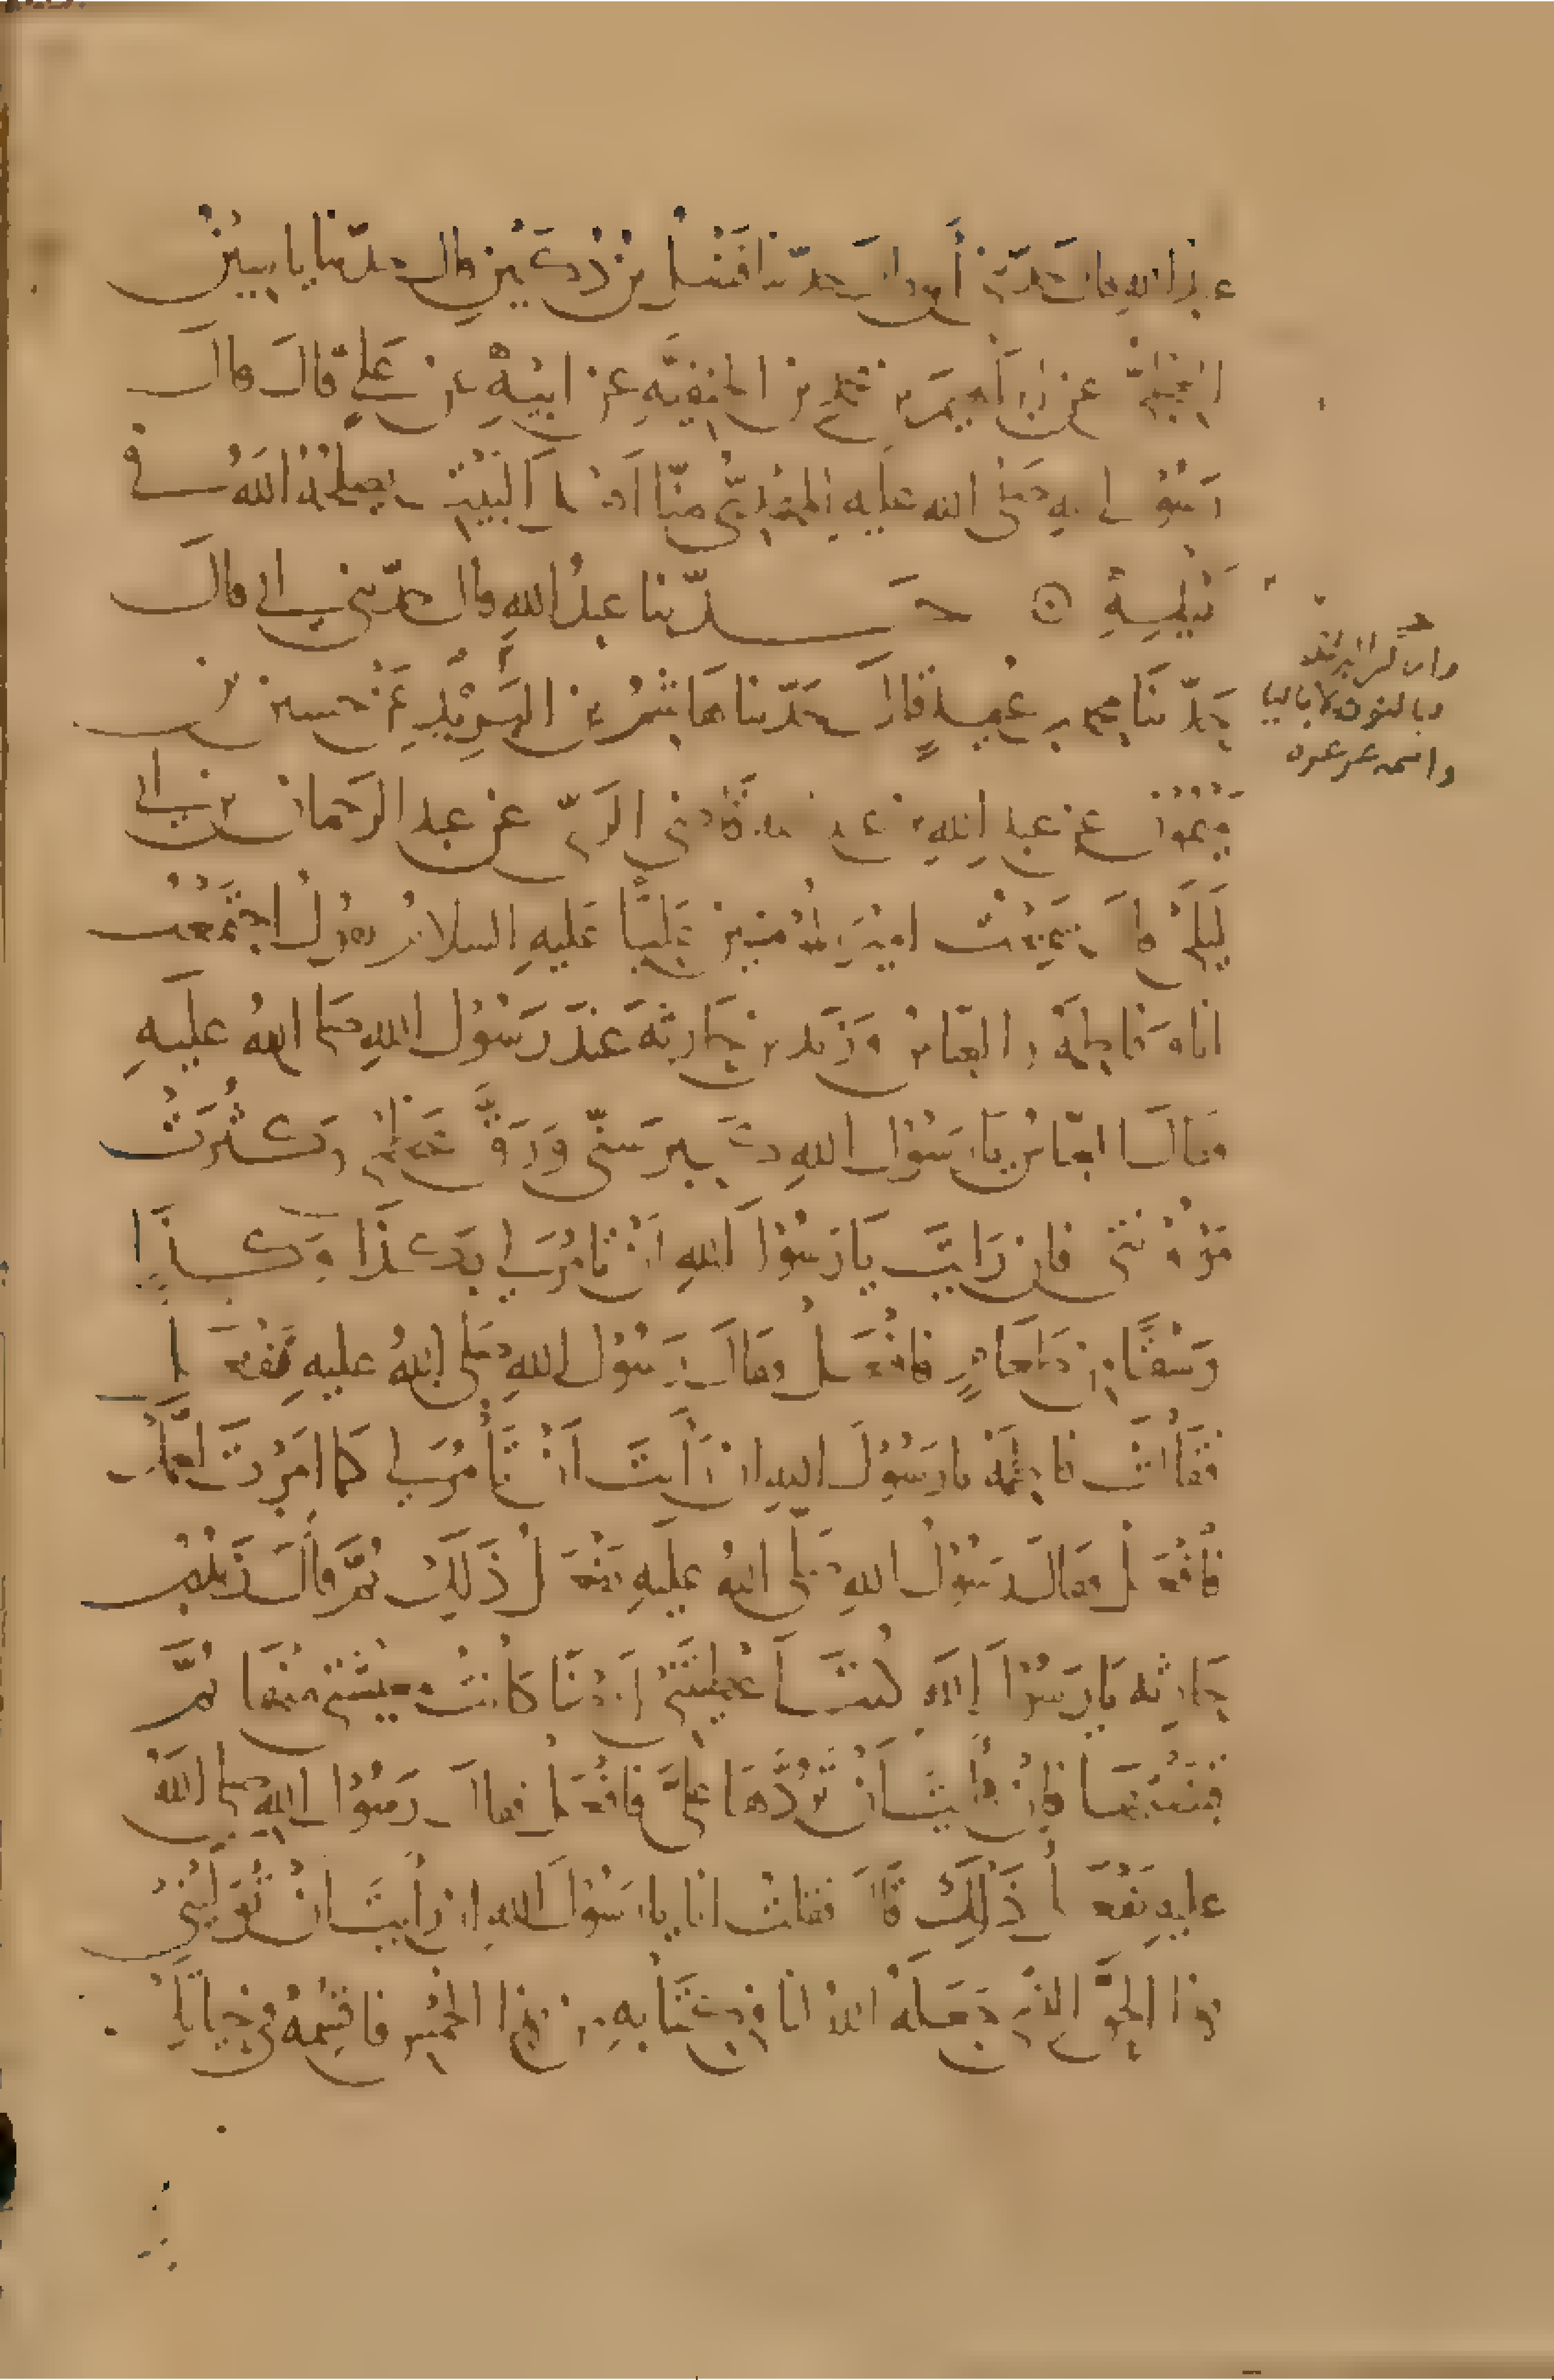 عبد الله قال حدّثني أبي قال حدّثنا فَضْلُ بنُ دُكَيْنٍ قال حدّثنا ياسين
العِجْليُّ عن إبراهيمَ بن محمدِ بن الحنفيّةِ عن ابيهِ عن عَليّ قالَ قالَ
رَسُول الله صَلى الله عليه المَهْدِيُّ منّا اَهْلَ الَبيْتِ يصلحُهُ اللهُ في
لَيْلَةٍ ⊙ حَدّثنا عبدُ الله قال حدّثني ابي قالَ
حَدّثنَا محمد بن عُبيدٍ قالَ حَدّثنا هَاشمُ بن البَرِيْدِ عَنْ حسين بن
مَيْمُونٍ عن عبد اللهِ بن عبد الله قَاضِي الرَيّ عن عبد الرَحمان بن ابي
لَيلَى قالَ سَمِعْتُ اميْرَ المُؤْمنين عَليًّا عَليهِ السلامُ يقولُ اجْتَمعْتُ
انا وَفاطِمَةُ والعَبّاسُ وَزَيد بن حَارثةَ عندَ رَسُول اللهِ صَلى اللهُ عليَهِ
فقالَ العبّاسُ يَا رَسُوْل اللهِ كَبِرَ سنّي وَرَقَّ عَظْمِي وَكَثُرَتْ
مَؤُوْنتي فان رَايتَ يَا رَسُوْلَ اَللهِ اَنْ تَامُرَ لي بكَذَا وَكَذَا
وَسْقًا مِنْ طَعَامٍ فَافْعَلْ فقالَ رَسُوْل اللهِ صَلى اللهُ عليهِ نَفْعَلُ
فَقَالَتْ فاطِمَةُ يا رَسُوْلَ اللهِ ان رَأَيتَ اَنْ تَأْمُرَ لي كَما امَرْتَ لعمِّكَ
فَافْعَلْ فقالَ رَسُوْلُ اللهِ صَلّى اللهُ عليَهِ نَفْعَلُ ذَلِكَ ثُمَّ قالَ زَيْدُ بنُ
حَارثه يَا رَسُوْلَ اللهِ كُنتَ اَعْطَيْتَني اَرْضًا كَانَتْ مَعِيْشتي منْهَا ثُمَّ
قبَضْتَهَا فَإنْ رَأيْتَ اَنْ تَرُدَّهَا عَليَّ فافْعَلْ فقالَ رَسُوْل اللهِ صَلى اللهُ
عليهِ نَفْعَلُ ذَلِكَ قَالَ فقلتُ انا يا رَسُوْلَ اللهِ ان رَأَيتَ اَنْ تُوَلِّيَني
هذا الحقَّ الذي جَعَلَهُ اللهُ لنا في كِتَابهِ من هذا الخُمُسِ فاقْسِمُهُ في حَياتِكَ
وبالنون لا باليا